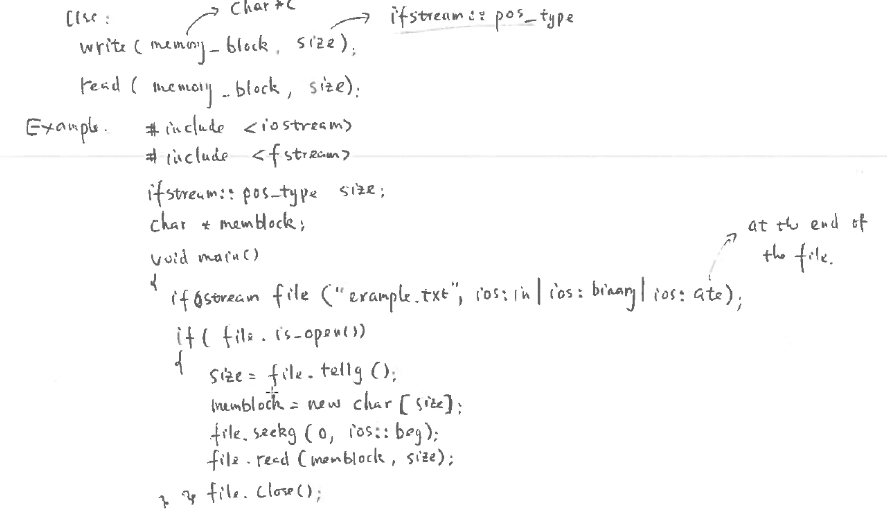 Use: char *
ifstream:: pos_type
write ( memory_block, size );
read ( memory_block, size );
Example. # include <iostream>
# include <fstream>
ifstream:: pos_type size;
char * memblock;
void main()
at the end of
the file.
{
ifstream file ("example.txt", ios: in | ios: binary | ios: ate);
if ( file. is_open())
{
size = file. tellg ();
memblock = new char [size];
file. seekg (0, ios:: beg);
file. read (memblock, size);
} } file. close();